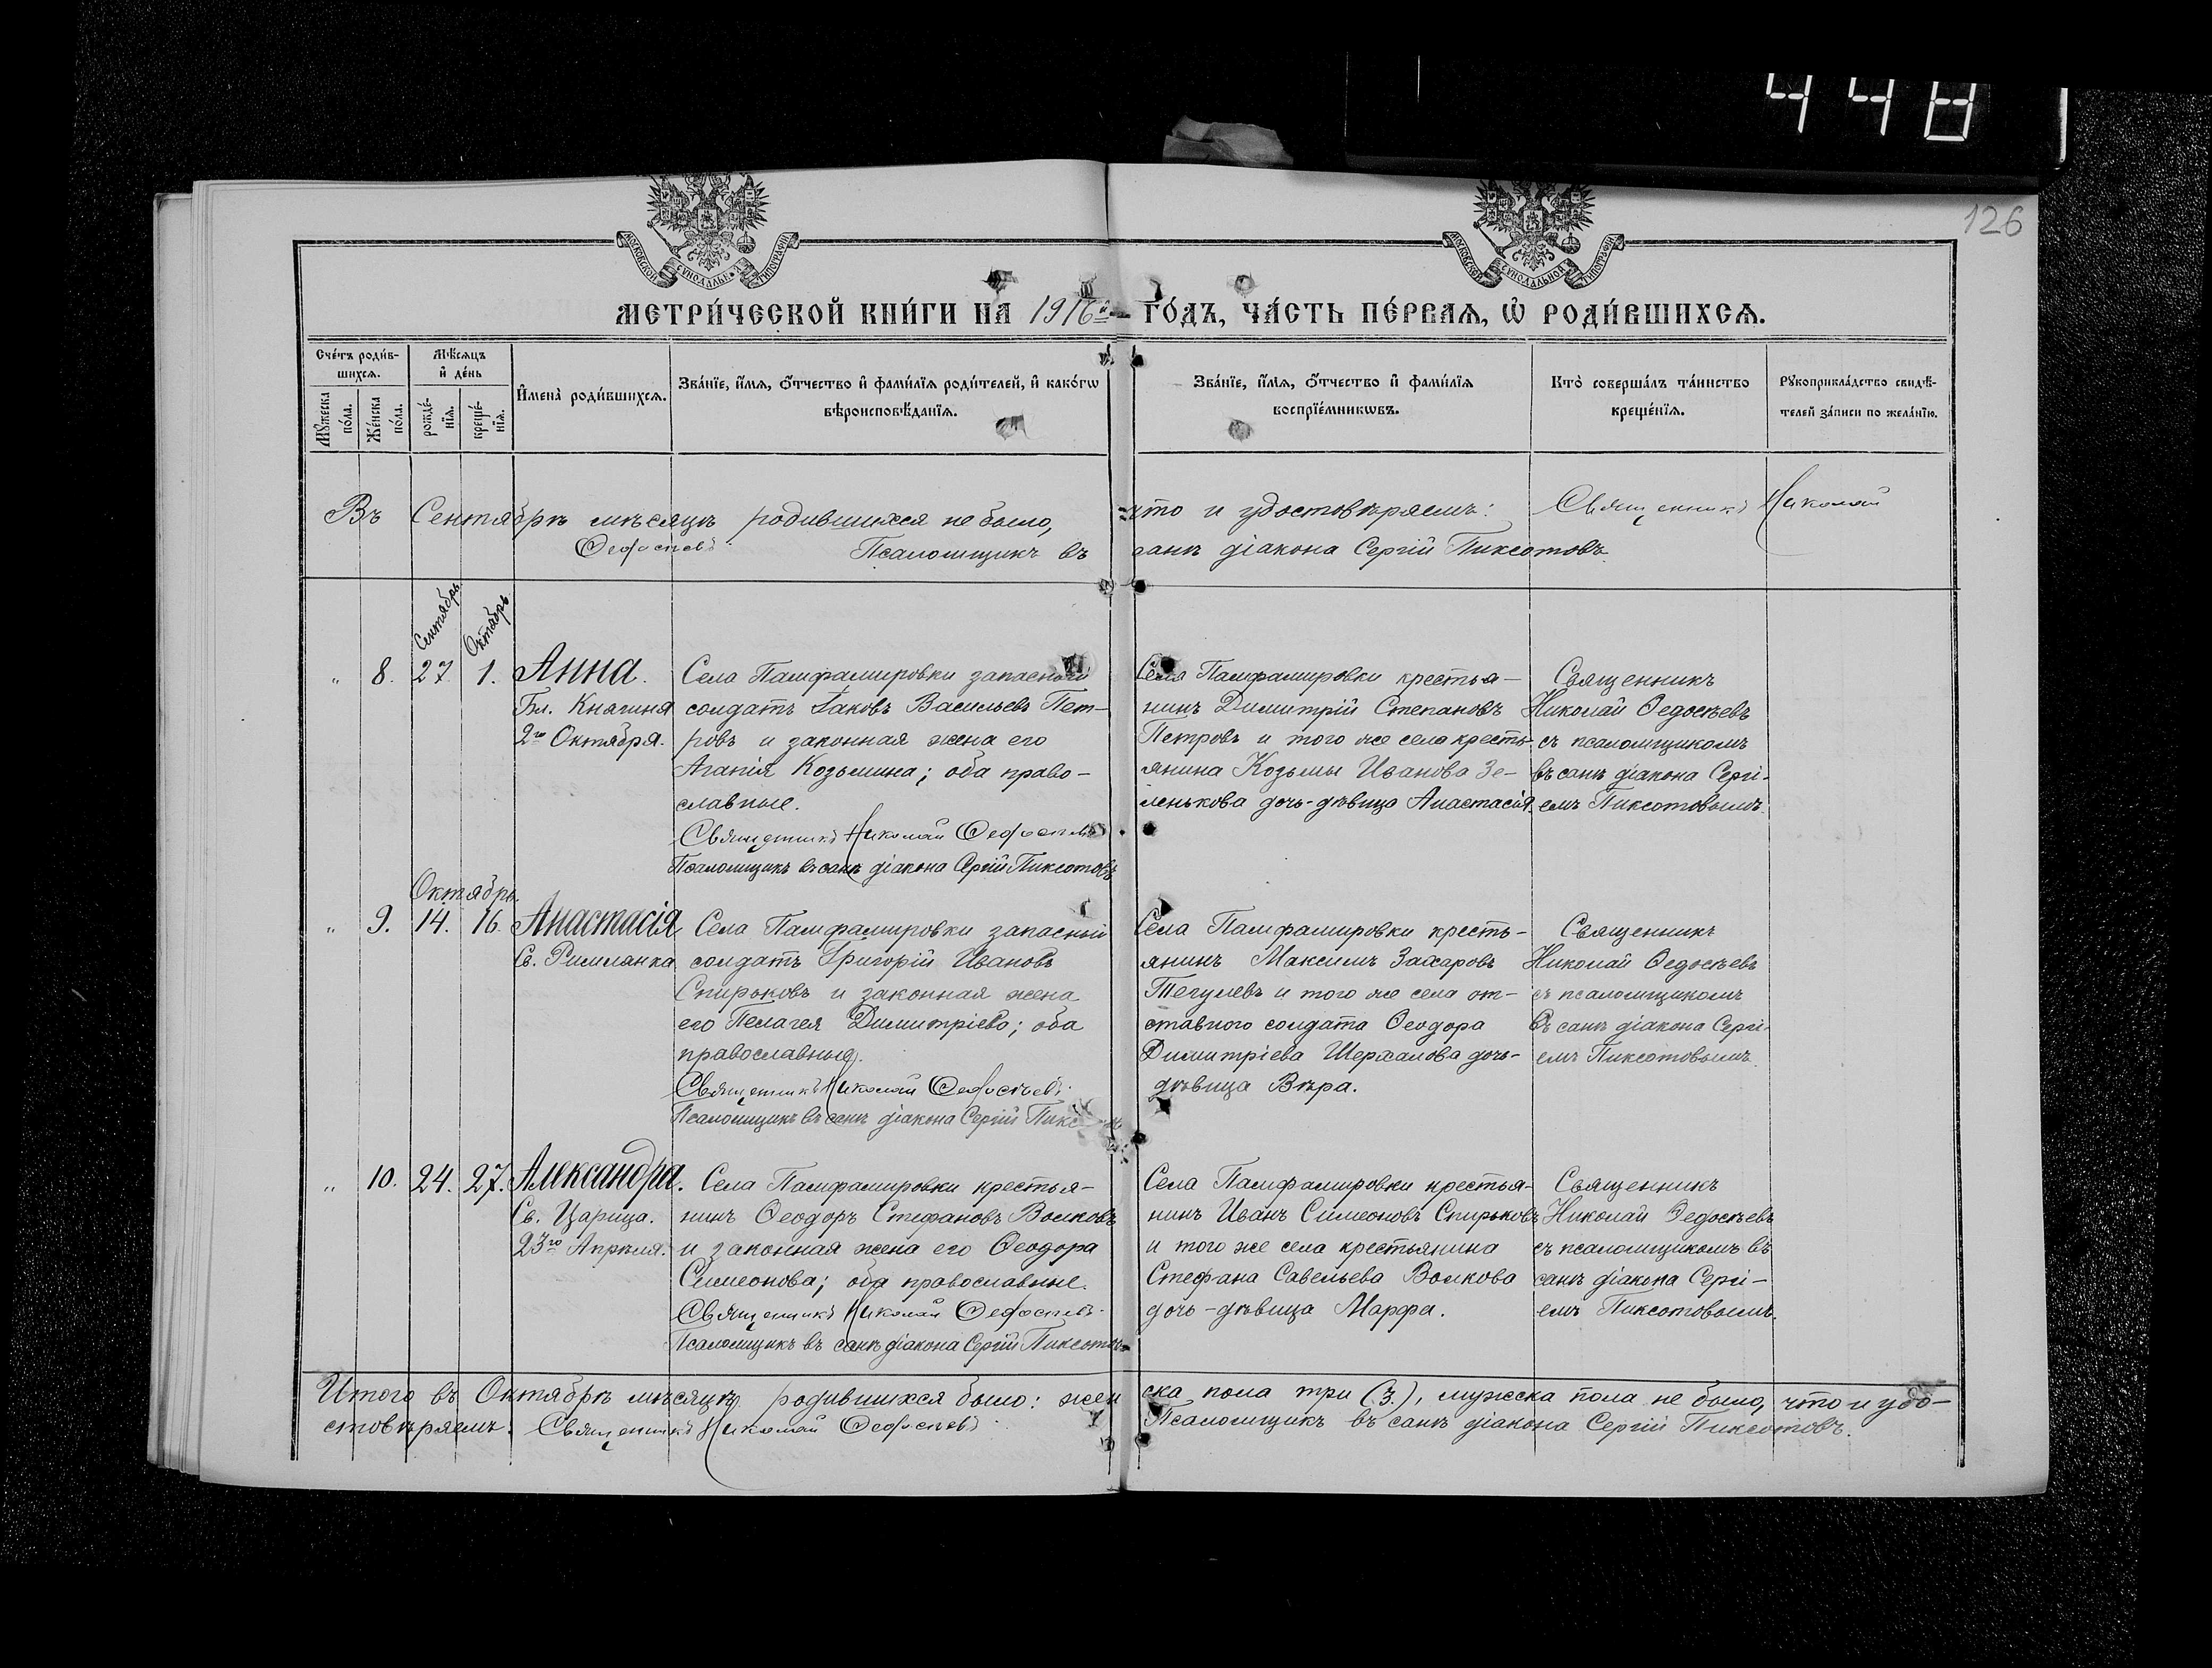 448
126
МОСКОВСКОЙ СѴНОДАЛЬНОЙ ТИПОГРАФІИ
МОСКОВСКОЙ СѴНОДАЛЬНОЙ ТИПОГРАФІИ
МЕТРИ́ЧЕСКОЙ КНИ́ГИ НА 1916й ГО́ДЪ, ЧА́СТЬ ПЕ́РВАѦ, Ѡ҆ РОДИ́ВШИХСѦ.
Сче́тъ роди́в-
шихсѧ.
Мѣ́сѧцъ
и҆ де́нь
Мꙋ́жеска
по́ла.
Же́нска
по́ла.
рожде́-
нїѧ.
креще́-
нїѧ.
И҆мена̀ роди́вшихсѧ.
Зва́нїе, и҆́мѧ, ѻ҆́тчество и҆ фами́лїѧ роди́телей, и҆ како́гѡ
вѣроисповѣ́данїѧ.
Зва́нїе, и҆́мѧ, ѻ҆́тчество и҆ фами́лїѧ
воспрїе́мникѡвъ.
Кто̀ соверша́лъ та́инство
креще́нїѧ.
Рꙋкоприкла́дство свидѣ́-
телей за́писи по жела́нїю.
Въ Сентябрѣ мѣсяцѣ родившихся не было, что и удостовѣряемъ: Священникъ Николай
Ѳедосѣевъ Псаломщикъ въ санѣ діакона Сергій Пиксотовъ.
Сентябрь Октябрь
" 8. 27. 1. Анна.
Бл. Княгиня
2го Октября.
Села Памфамировки запасный
солдатъ Іаковъ Васильевъ Пет-
ровъ и законная жена его
Агапія Козьмина; оба право-
славные.
Священникъ Николай Ѳедосѣевъ
Псаломщикъ въ санѣ діакона Сергій Пиксотовъ
Села Памфамировки крестья-
нинъ Димитрій Степановъ
Петровъ и того же села кресть-
янина Козьмы Иванова Зе-
ленькова дочь-дѣвица Анастасія.
Священникъ
Николай Ѳедосѣевъ
съ псаломщикомъ
въ санѣ діакона Сергі-
емъ Пиксотовымъ.
Октябрь.
" 9. 14. 16. Анастасія
Св. Римлянка
Села Памфамировки запасный
солдатъ Григорій Ивановъ
Спирьковъ и законная жена
его Пелагея Димитріева; оба
православные.
Священникъ Николай Ѳедосѣевъ
Псаломщикъ въ санѣ діакона Сергій
Села Памфамировки кресть-
янинъ Максимъ Захаровъ
Тегулевъ и того же села от-
ставного солдата Ѳеодора
Димитріева Шерхалова дочь-
дѣвица Вѣра.
Священникъ
Николай Ѳедосѣевъ
съ псаломщикомъ
въ санѣ діакона Сергі-
емъ Пиксотовымъ.
" 10. 24. 27. Александра.
Св. Царица.
23го Апрѣля.
Села Памфамировки крестья-
нинъ Ѳеодоръ Стефановъ Волковъ
и законная жена его Ѳеодора
Симеонова; оба православные.
Священникъ Николай Ѳедосѣевъ
Псаломщикъ въ санѣ діакона Сергій Пиксотовъ
Села Памфамировки крестья-
нинъ Иванъ Симеоновъ Спирьковъ
и того же села крестьянина
Стефана Савельева Волкова
дочь-дѣвица Марфа.
Священникъ
Николай Ѳедосѣевъ
съ псаломщикомъ въ
санѣ діакона Сергі-
емъ Пиксотовымъ.
Итого въ Октябрѣ мѣсяцѣ родившихся было: женска пола три (3.), мужска пола не было, что и удо-
стовѣряемъ. Священникъ Николай Ѳедосѣевъ Псаломщикъ въ санѣ діакона Сергій Пиксотовъ.